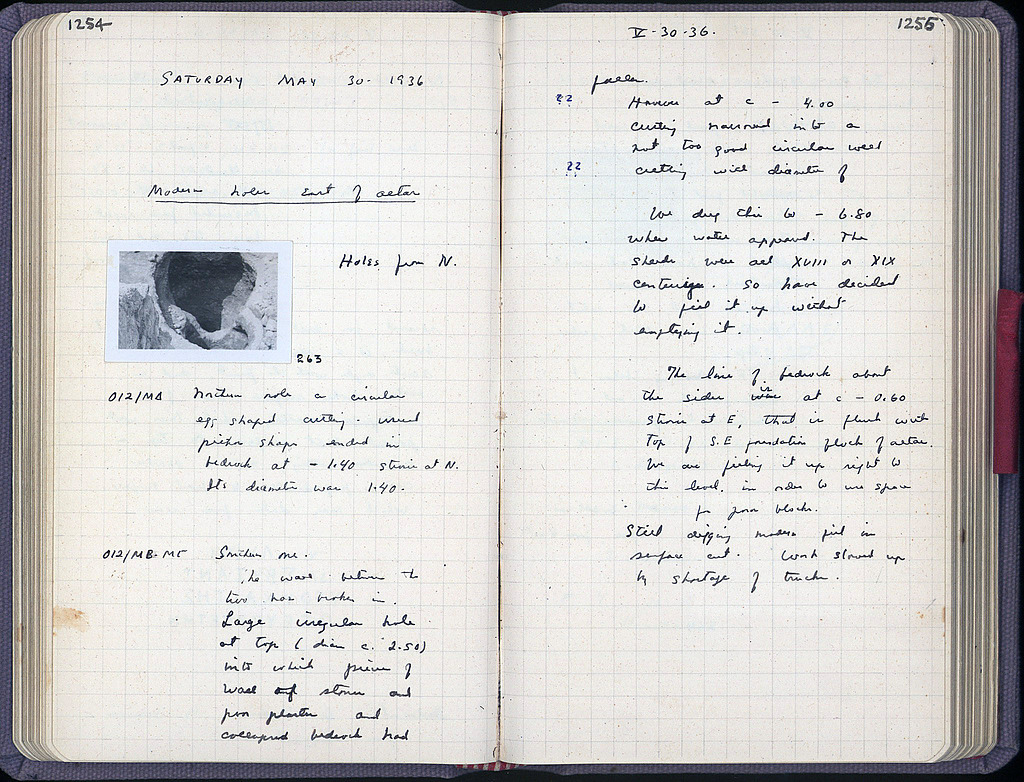 1254
SATURDAY MAY 30- 1936
Modern holes East of altar
Holes from N.
263
012/MA Northern hole a circular
egg shaped cutting. usual
pithos shape ended in
bedrock at - 1.40 stone at N.
Its diameter was 1.40.
012/MB-MΓ Southern one.
The wall between the
two has broken in.
Large irregular hole
at top (diam c. 2.50)
into which pieces of
wall of stones and
poor plaster and
collapsed bedrock had
1255
V-30-36.
fallen.
?? However at c - 4.00
cutting narrowed into a
not too good circular well
?? cutting with diameter of
We dug this to - 6.80
when water appeared. The
sherds were all XVIII or XIX
centuries. So have decided
to fill it up without
emptying it.
The line of bedrock about
the sides is at c - 0.60
stone at E, that is flush with
top of S.E foundation block of altar.
We are filling it up right to
this level, in order to use space
for poros blocks.
Still digging modern fill in
surface cut. Work slowed up
by shortage of trucks.